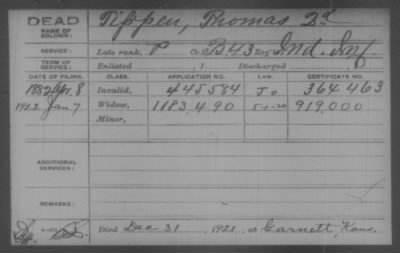 DEAD
NAME OF SOLDIER: Tippen, Thomas 2d
SERVICE: Late rank, P Co. B 43 Reg't Ind. Inf.
TERM OF SERVICE: Enlisted , 1 Discharged
DATE OF FILING. CLASS. APPLICATION NO. LAW. CERTIFICATE NO.
1882 Apr. 8 Invalid, 445584 364463
1922 Jan 7 Widow, 1183490 919,000
Minor,
ADDITIONAL SERVICES:
REMARKS:
Died Dec 31, 1921, at Garnett, Kans.